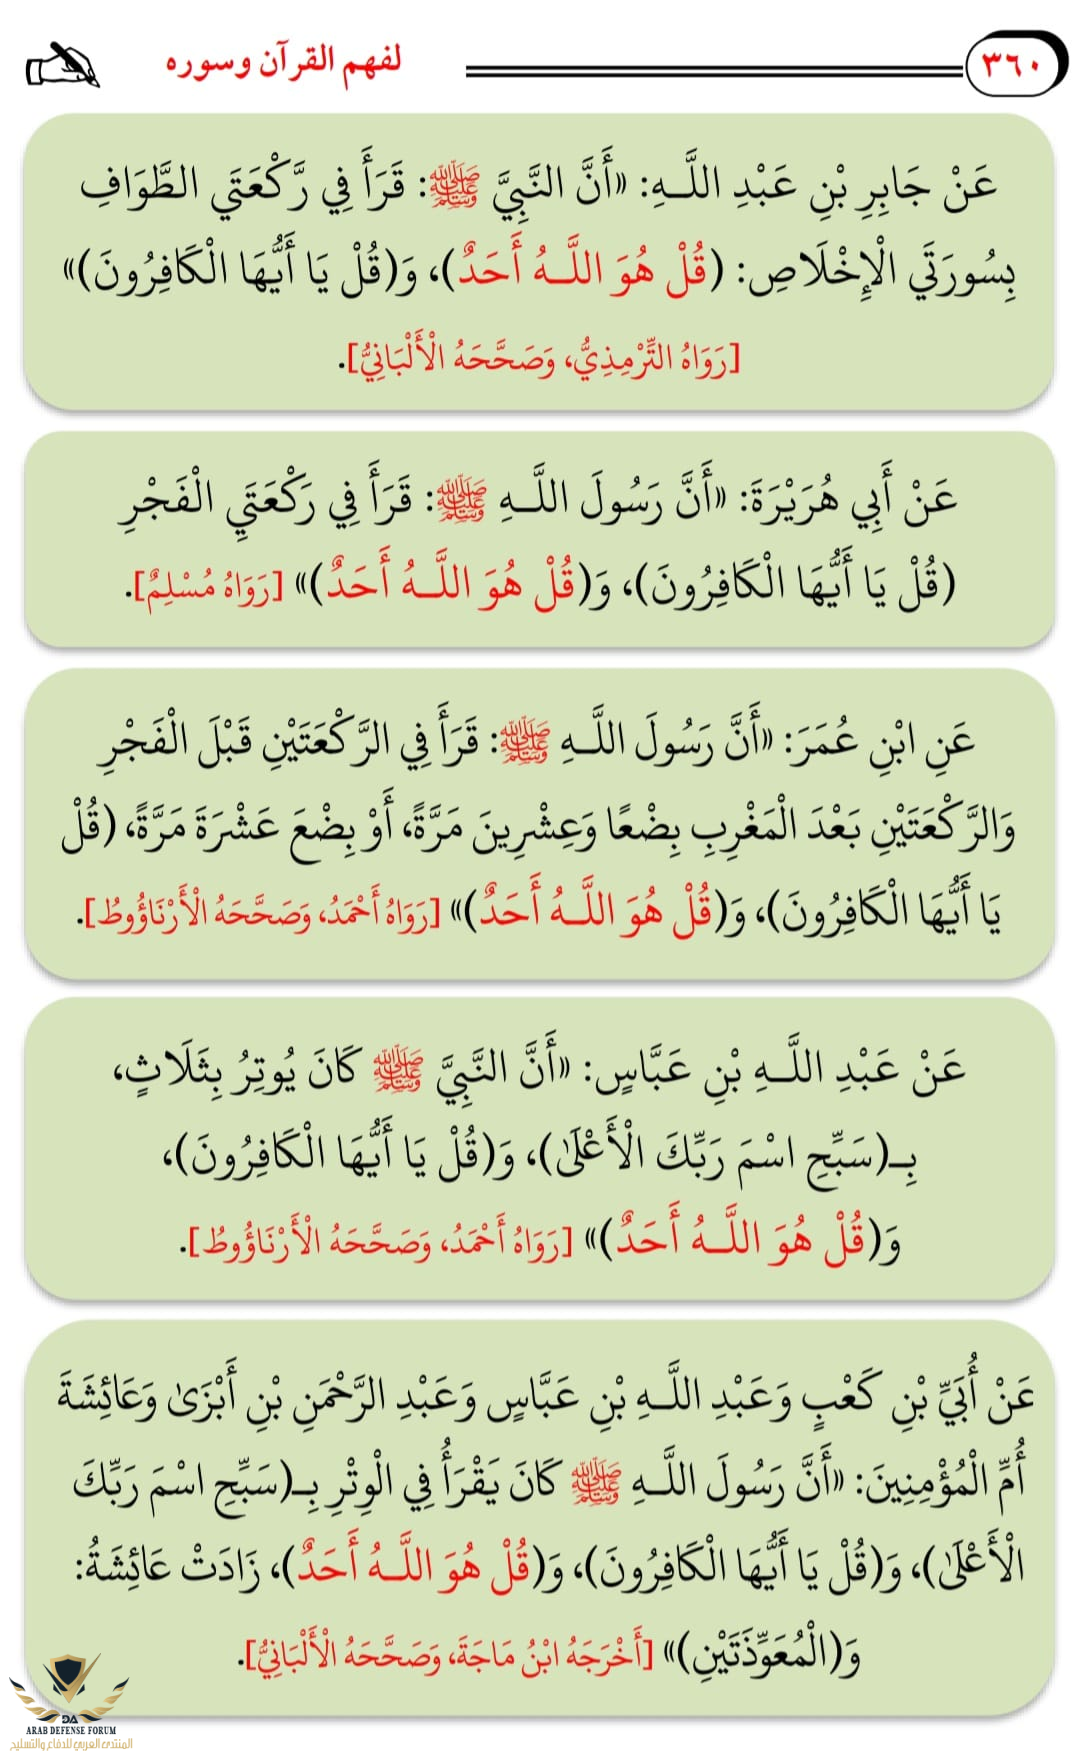 ٣٦٠
لفهم القرآن وسوره
عَنْ جَابِرِ بْنِ عَبْدِ اللَّـهِ: «أَنَّ النَّبِيَّ ﷺ: قَرَأَ فِي رَّكْعَتَي الطَّوَافِ
بِسُورَتَي الْإِخْلَاصِ: (قُلْ هُوَ اللَّـهُ أَحَدٌ)، وَ(قُلْ يَا أَيُّهَا الْكَافِرُونَ)»
[رَوَاهُ التِّرْمِذِيُّ، وَصَحَّحَهُ الْأَلْبَانِيُّ].
عَنْ أَبِي هُرَيْرَةَ: «أَنَّ رَسُولَ اللَّـهِ ﷺ: قَرَأَ فِي رَكْعَتَيِ الْفَجْرِ
(قُلْ يَا أَيُّهَا الْكَافِرُونَ)، وَ(قُلْ هُوَ اللَّـهُ أَحَدٌ)» [رَوَاهُ مُسْلِمٌ].
عَنِ ابْنِ عُمَرَ: «أَنَّ رَسُولَ اللَّـهِ ﷺ: قَرَأَ فِي الرَّكْعَتَيْنِ قَبْلَ الْفَجْرِ
وَالرَّكْعَتَيْنِ بَعْدَ الْمَغْرِبِ بِضْعًا وَعِشْرِينَ مَرَّةً، أَوْ بِضْعَ عَشْرَةَ مَرَّةً، (قُلْ
يَا أَيُّهَا الْكَافِرُونَ)، وَ(قُلْ هُوَ اللَّـهُ أَحَدٌ)» [رَوَاهُ أَحْمَدُ، وَصَحَّحَهُ الْأَرْنَاؤُوطُ].
عَنْ عَبْدِ اللَّـهِ بْنِ عَبَّاسٍ: «أَنَّ النَّبِيَّ ﷺ كَانَ يُوتِرُ بِثَلَاثٍ،
بِـ(سَبِّحِ اسْمَ رَبِّكَ الْأَعْلَىٰ)، وَ(قُلْ يَا أَيُّهَا الْكَافِرُونَ)،
وَ(قُلْ هُوَ اللَّـهُ أَحَدٌ)» [رَوَاهُ أَحْمَدُ، وَصَحَّحَهُ الْأَرْنَاؤُوطُ].
عَنْ أُبَيِّ بْنِ كَعْبٍ وَعَبْدِ اللَّـهِ بْنِ عَبَّاسٍ وَعَبْدِ الرَّحْمَنِ بْنِ أَبْزَىٰ وَعَائِشَةَ
أُمِّ الْمُؤْمِنِينَ: «أَنَّ رَسُولَ اللَّـهِ ﷺ كَانَ يَقْرَأُ فِي الْوِتْرِ بِـ(سَبِّحِ اسْمَ رَبِّكَ
الْأَعْلَىٰ)، وَ(قُلْ يَا أَيُّهَا الْكَافِرُونَ)، وَ(قُلْ هُوَ اللَّـهُ أَحَدٌ)، زَادَتْ عَائِشَةُ:
وَ(الْمُعَوِّذَتَيْنِ)» [أَخْرَجَهُ ابْنُ مَاجَةَ، وَصَحَّحَهُ الْأَلْبَانِيُّ].
DA
ARAB DEFENSE FORUM
المنتدى العربي للدفاع والتسليح